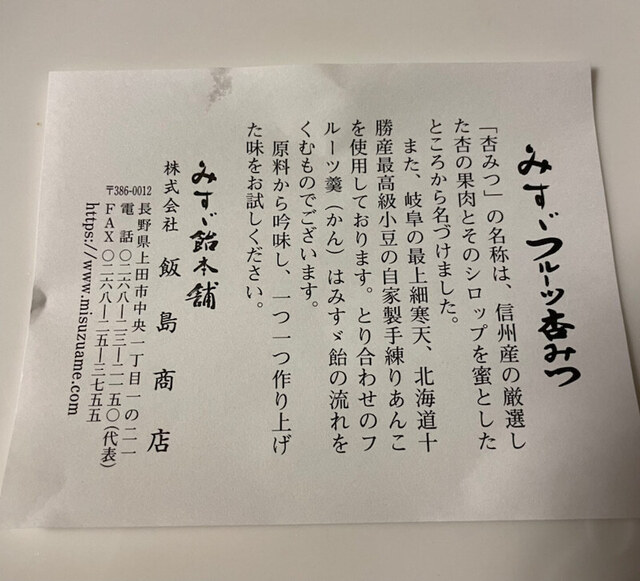 みすゞフルーツ杏みつ
「杏みつ」の名称は、信州産の厳選し
た杏の果肉とそのシロップを蜜とした
ところから名づけました。
また、岐阜の最上細寒天、北海道十
勝産最高級小豆の自家製手練りあんこ
を使用しております。とり合わせのフ
ルーツ羹（かん）はみすゞ飴の流れを
くむものでございます。
原料から吟味し、一つ一つ作り上げ
た味をお試しください。
みすゞ飴本舗
株式会社 飯島商店
〒386-0012
長野県上田市中央一丁目一の二一
電話 〇二六八―二三―二一五〇（代表）
ＦＡＸ 〇二六八―二五―三七五五
https://www.misuzuame.com